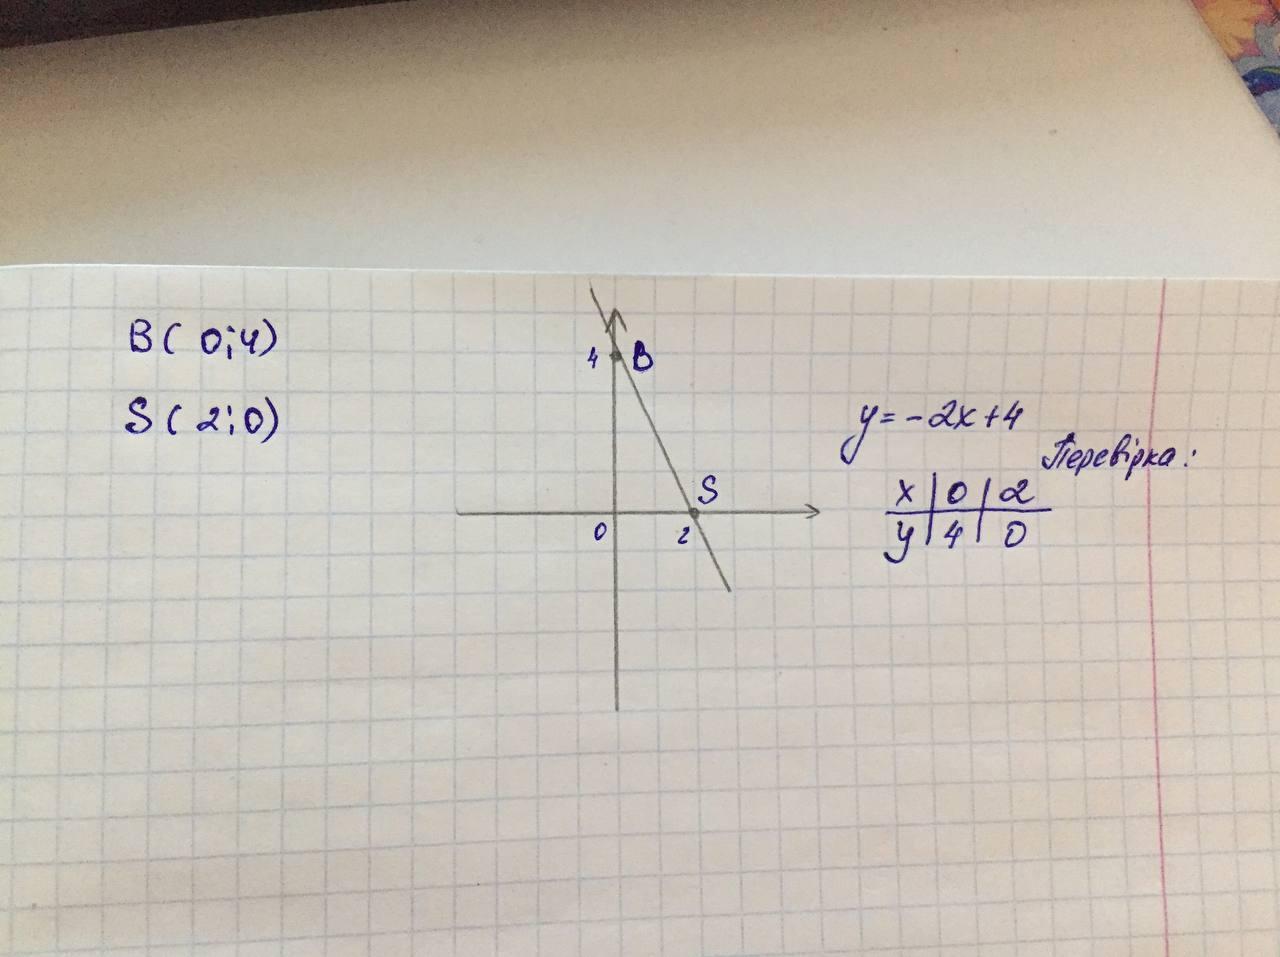 B( 0;4)
S( 2;0)
4 B
S
0 2
y=-2x+4
Перевірка:
x | 0 | 2
y | 4 | 0